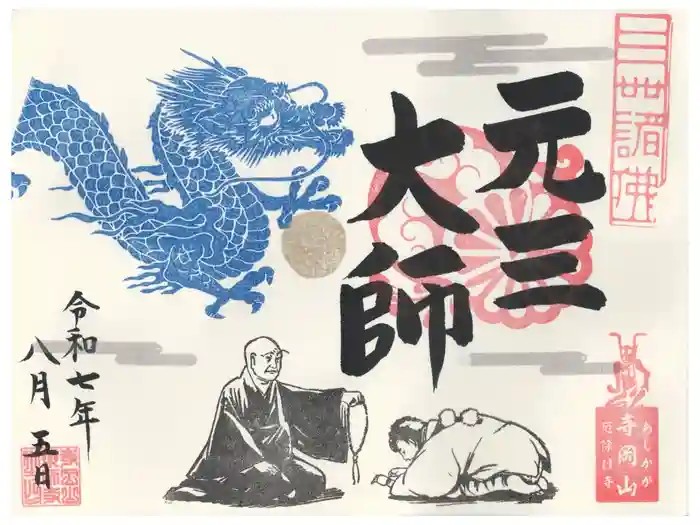 三世諸佛
元三
大師
令和七年
八月五日
あしかが
寺岡山
厄除け寺